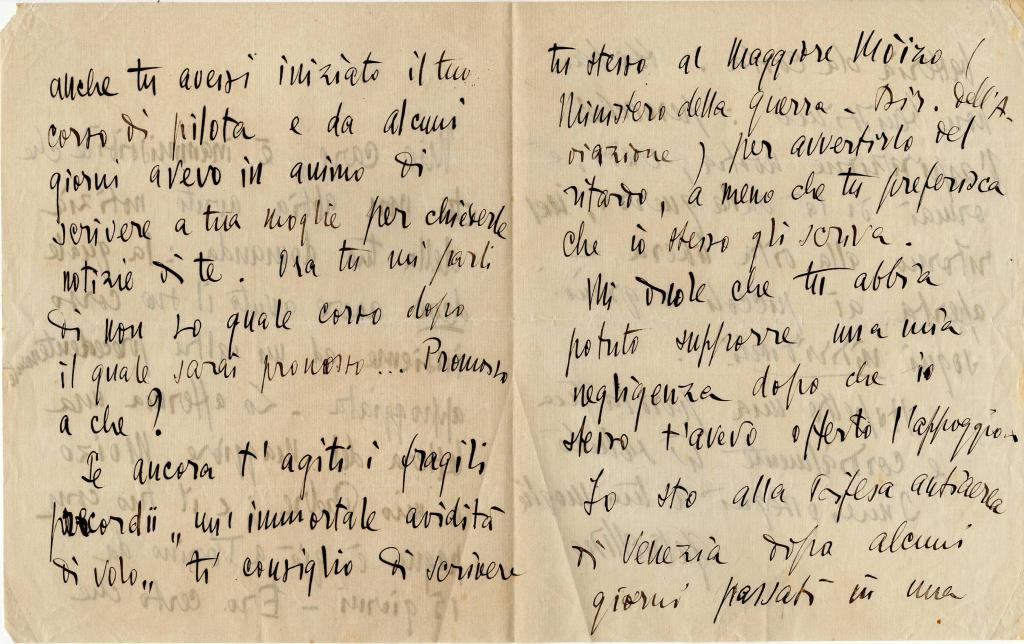 anche tu avessi iniziato il tuo
corso di pilota e da alcuni
giorni avevo in animo di
scrivere a tua moglie per chiederle
notizie di te. Ora tu mi parli
di non so quale corso dopo
il quale sarai promosso... Promosso
a che?
Se ancora t'agiti i fragili
precordii „un'immortale avidità
di volo„ ti consiglio di scrivere
tu stesso al Maggiore Mòizo (
Ministero della guerra - Dir. dell'A-
viazione) per avvertirlo del
ritardo, a meno che tu preferisca
che io stesso gli scriva.
Mi duole che tu abbia
potuto supporre una mia
negligenza dopo che io
stesso t'avevo offerto l'appoggio.
Io sto alla Difesa antiaerea
di Venezia dopo alcuni
giorni passati in una